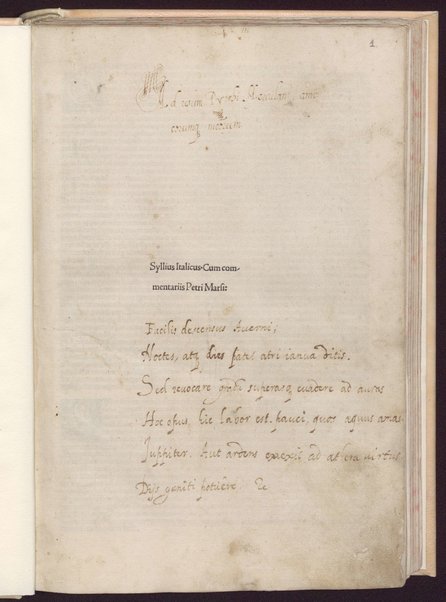 1
Ad usum
Syllius Italicus. Cum com-
mentariis Petri Marsi:
Facilis descensus Averni;
Noctes, atq dies patet atri ianua ditis.
Sed revocare gradū superasq evadere ad auras
Hoc opus, hic labor est. pauci, quos aquus amas
Juppiter. Aut ardens evexit ad astra virtus
Dijs geniti potuere. &c